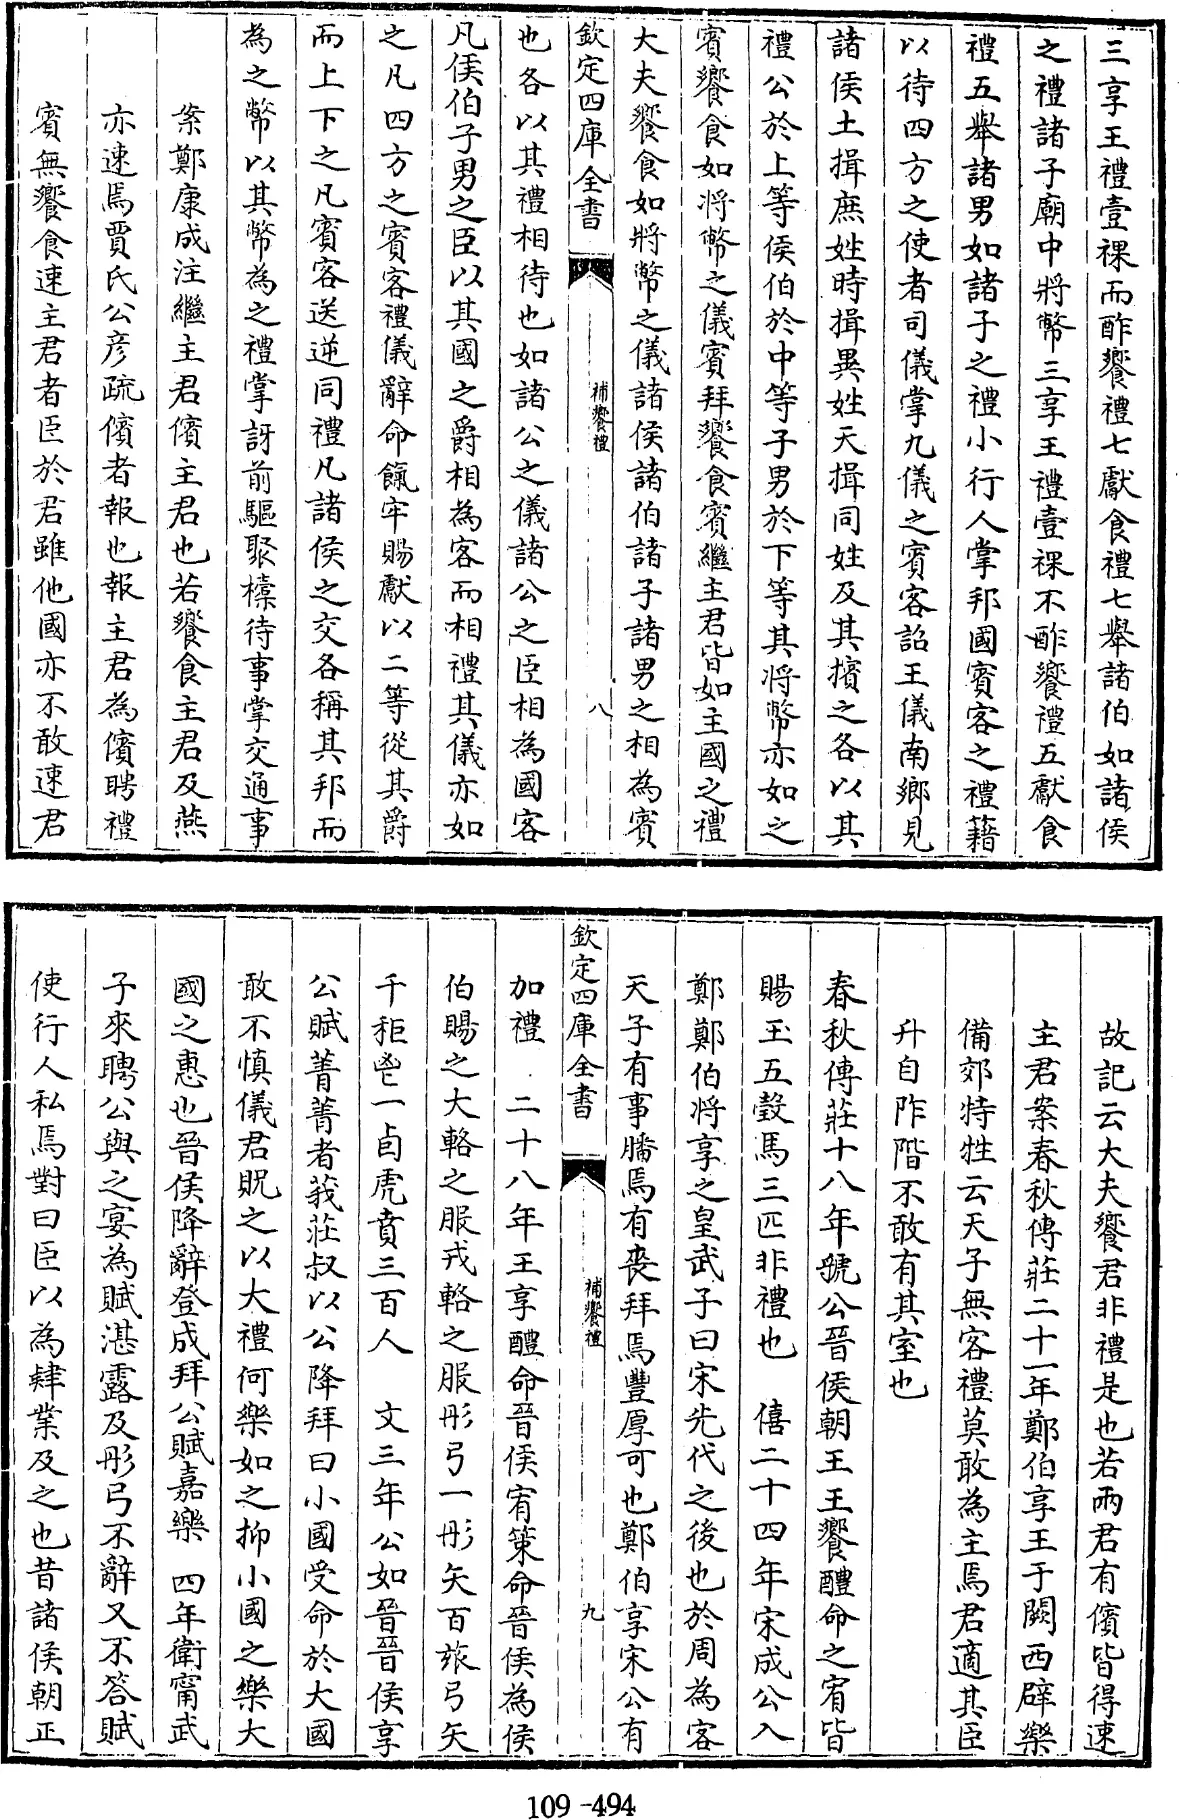 三享王禮壹祼而酢饗禮七獻食禮七舉諸伯如諸侯
之禮諸子廟中將幣三享王禮壹祼不酢饗禮五獻食
禮五舉諸男如諸子之禮小行人掌邦國賓客之禮籍
以待四方之使者司儀掌九儀之賓客詔王儀南鄉見
諸侯土揖庶姓時揖異姓天揖同姓及其擯之各以其
禮公於上等侯伯於中等子男於下等其將幣亦如之
賓饗食如將幣之儀賓拜饗食賓繼主君皆如主國之禮
大夫饗食如將幣之儀諸侯諸伯諸子諸男之相為賓
欽定四庫全書 補饗禮 八
也各以其禮相待也如諸公之儀諸公之臣相為國客
凡侯伯子男之臣以其國之爵相為客而相禮其儀亦如
之凡四方之賓客禮儀辭命餼牢賜獻以二等從其爵
而上下之凡賓客送逆同禮凡諸侯之交各稱其邦而
為之幣以其幣為之禮掌訝前驅聚檀待事掌交通事
案鄭康成注繼主君儐主君也若饗食主君及燕
亦速焉賈氏公彦疏儐者報也報主君為儐聘禮
賓無饗食速主君者臣於君雖他國亦不敢速君
故記云大夫饗君非禮是也若兩君有儐皆得速
主君案春秋傳莊二十一年鄭伯享王于闕西辟樂
備郊特牲云天子無客禮莫敢為主焉君適其臣
升自阼階不敢有其室也
春秋傳莊十八年虢公晉侯朝王王饗醴命之宥皆
賜玉五瑴馬三匹非禮也 僖二十四年宋成公入
鄭鄭伯將享之皇武子曰宋先代之後也於周為客
天子有事膰焉有喪拜焉豐厚可也鄭伯享宋公有
欽定四庫全書 補饗禮 九
加禮 二十八年王享醴命晉侯宥策命晉侯為侯
伯賜之大輅之服戎輅之服彤弓一彤矢百玈弓矢
千秬鬯一卣虎賁三百人 文三年公如晉晉侯享
公賦菁菁者莪莊叔以公降拜曰小國受命於大國
敢不慎儀君貺之以大禮何樂如之抑小國之樂大
國之惠也晉侯降辭登成拜公賦嘉樂 四年衛甯武
子來聘公與之宴為賦湛露及彤弓不辭又不答賦
使行人私焉對曰臣以為肄業及之也昔諸侯朝正
109-494